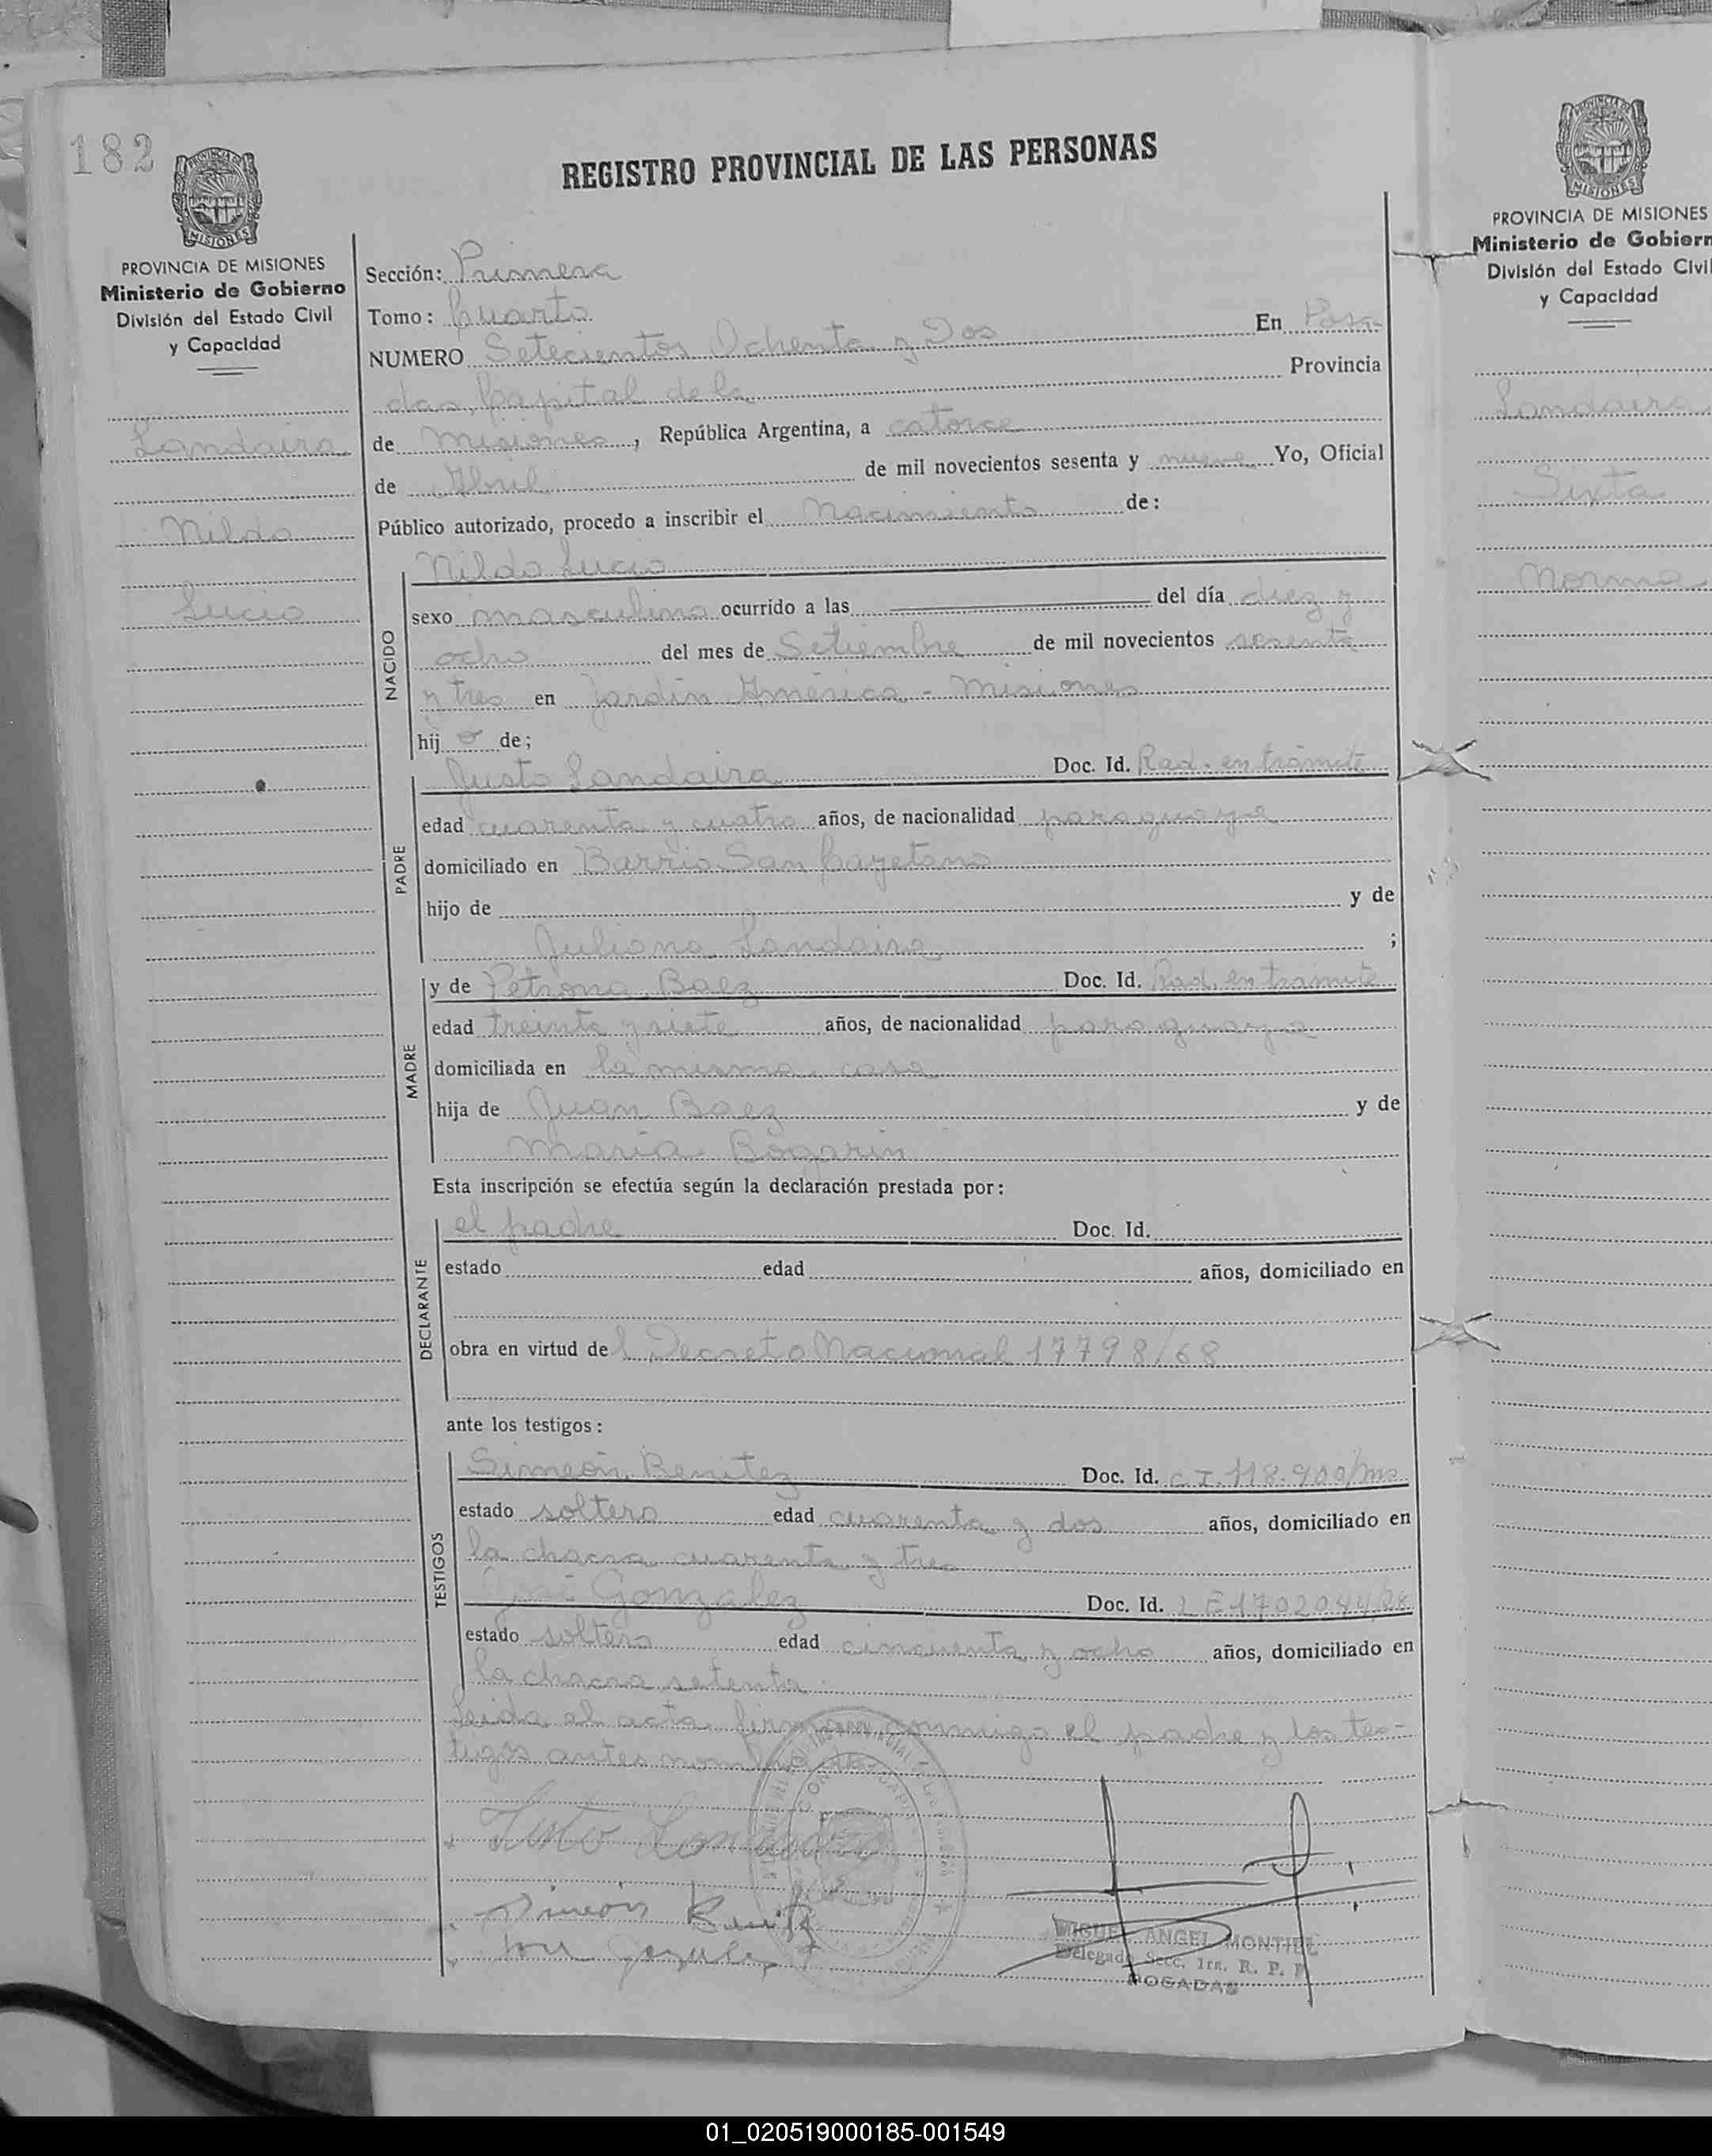 182
REGISTRO PROVINCIAL DE LAS PERSONAS
PROVINCIA DE MISIONES
Ministerio de Gobierno
División del Estado Civil
y Capacidad
Landaira
Nildo
Lucio
Sección: Primera
Tomo: Cuarto
NUMERO Setecientos Ochenta y Dos En Posa-
das, Capital de la Provincia
de Misiones, República Argentina, a catorce
de Abril de mil novecientos sesenta y nueve Yo, Oficial
Público autorizado, procedo a inscribir el Nacimiento de:
NACIDO
Nildo Lucio
sexo masculino ocurrido a las del día diez y
ocho del mes de Setiembre de mil novecientos sesenta
y tres en Jardín América - Misiones
hijo de;
PADRE
Justo Landaira Doc. Id. Rad. en trámite
edad cuarenta y cuatro años, de nacionalidad paraguaya
domiciliado en Barrio San Cayetano
hijo de y de
Juliana Landaira ;
MADRE
y de Petrona Baez Doc. Id. Rad. en trámite
edad treinta y siete años, de nacionalidad paraguaya
domiciliada en la misma casa
hija de Juan Baez y de
María Bogarin
Esta inscripción se efectúa según la declaración prestada por:
DECLARANTE
el padre Doc. Id.
estado edad años, domiciliado en
obra en virtud del Decreto Nacional 17798/68
ante los testigos:
TESTIGOS
Simeón Benitez Doc. Id. C.I. 118.900/Ms
estado soltero edad cuarenta y dos años, domiciliado en
la chacra cuarenta y tres
José Gonzalez Doc. Id. LE 1702044
estado soltero edad cincuenta y ocho años, domiciliado en
la chacra setenta
Leida el acta firman conmigo el padre y los tes-
tigos antes
Justo Landaira
Simeón Benitez
José Gonzalez
MIGUEL ANGEL MONTIEL
Delegado Secc. 1ra. R. P. P.
POSADAS
PROVINCIA DE MISIONES
Ministerio de Gobiern
División del Estado Civil
y Capacidad
Landaira
Sixta
Norma
01_020519000185-001549